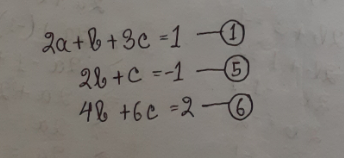 2a+b+3c=1 — ①
2b+c=-1 — ⑤
4b+6c=2 — ⑥